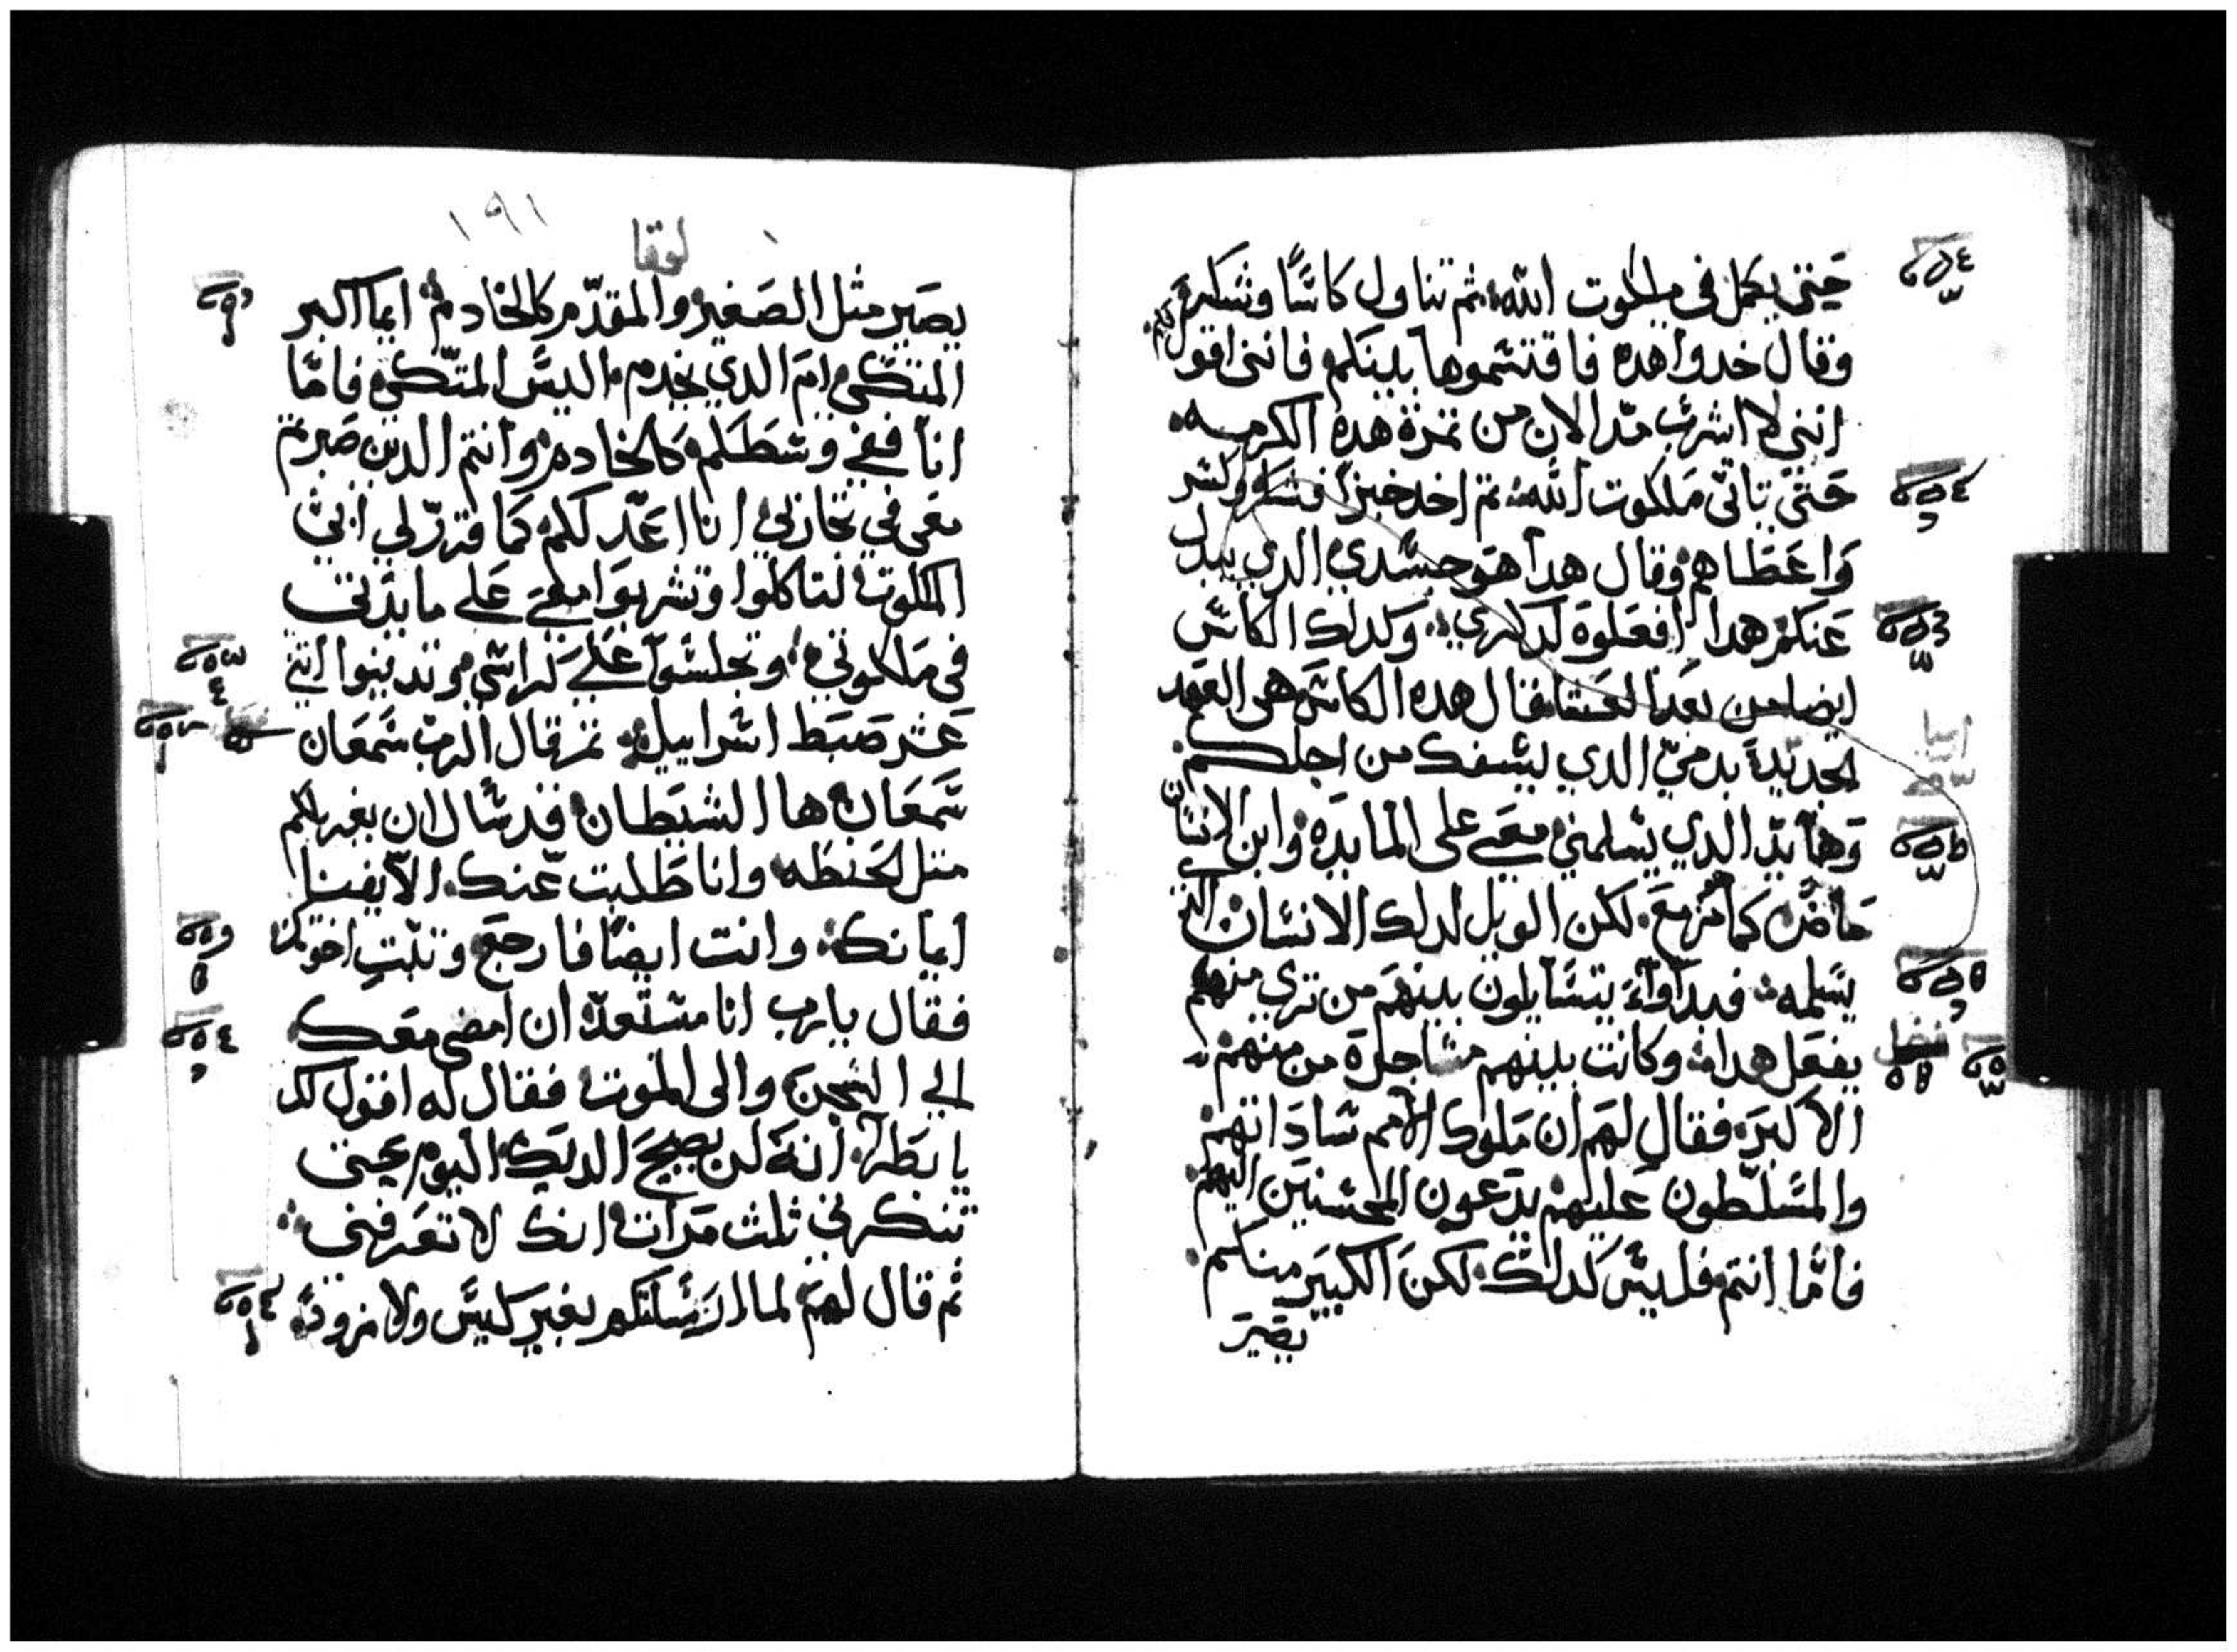 حتي يكمل في ملكوت الله، ثم تناول كاسًا وشكر
وقال خدوا هده فاقتسموها بينكم فانني اقول لكم
انني لا اشرب مدّ الان من ثمرة هده الكرمه
حتي تاتي ملكوت الله ثم اخد خبزًا فشكر وكسر
واعطاهم وقال هدا هو جسدي الدي يبدل
عنكم هدا افعلوه لدكري، وكدلك الكاس
ايضا من بعد العشا قال هده الكاس هي العهد
الجديد بدمي الدي يسفك من اجلكم
وها يد الدي يسلمني معي علي المايده وابن الانسان
ماضٍ كما زمع، لكن الويل لدلك الانسان الدي
يسلمه فبداوا يتسايلون بينهم من تري منهم
يفعل هدا وكانت بينهم مشاجرة من منهم
الاكبر، فقال لهم ان ملوك الامم ساداتهم
والمسلطون عليهم يدعون المحسنين اليهم
فامّا انتم فليس كدلك لكن الكبير منكم
يصير
فصل
١٩١
لوقا
يصير مثل الصغير والمقدّم كالخادم ايما اكبر
المتكي ام الدي يخدم اليس المتكي فامّا
انا ففي وسطكم كالخادم وانتم الدين صبرتم
معي في تجاربي انا اعد لكم كما قرر لي ابي
الملكوت لتاكلوا وتشربوا معي علي مايدتي
في ملكوتي وتجلسوا علي كراسي وتدينوا اثني
عشر صبط اسراييل ثم قال الرب سمعان
سمعان ها الشيطان قد سال ان يغربلكم
مثل الحنطه وانا طلبت عنك الّا يفنا
ايمانك، وانت ايضًا فارجع وثبت اخوتك
فقال يارب انا مستعدّ ان امضي معك
الي السجن والي الموت فقال له اقول لك
يابطرا انه لن يصيح الديك اليوم حتي
تنكرني ثلث مرات انك لا تعرفني
ثم قال لهم لما ارسلتكم بغير كيس ولا مزود